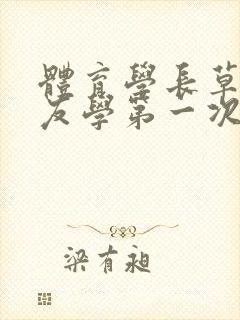 體育學長草
友學第一次
梁有昶